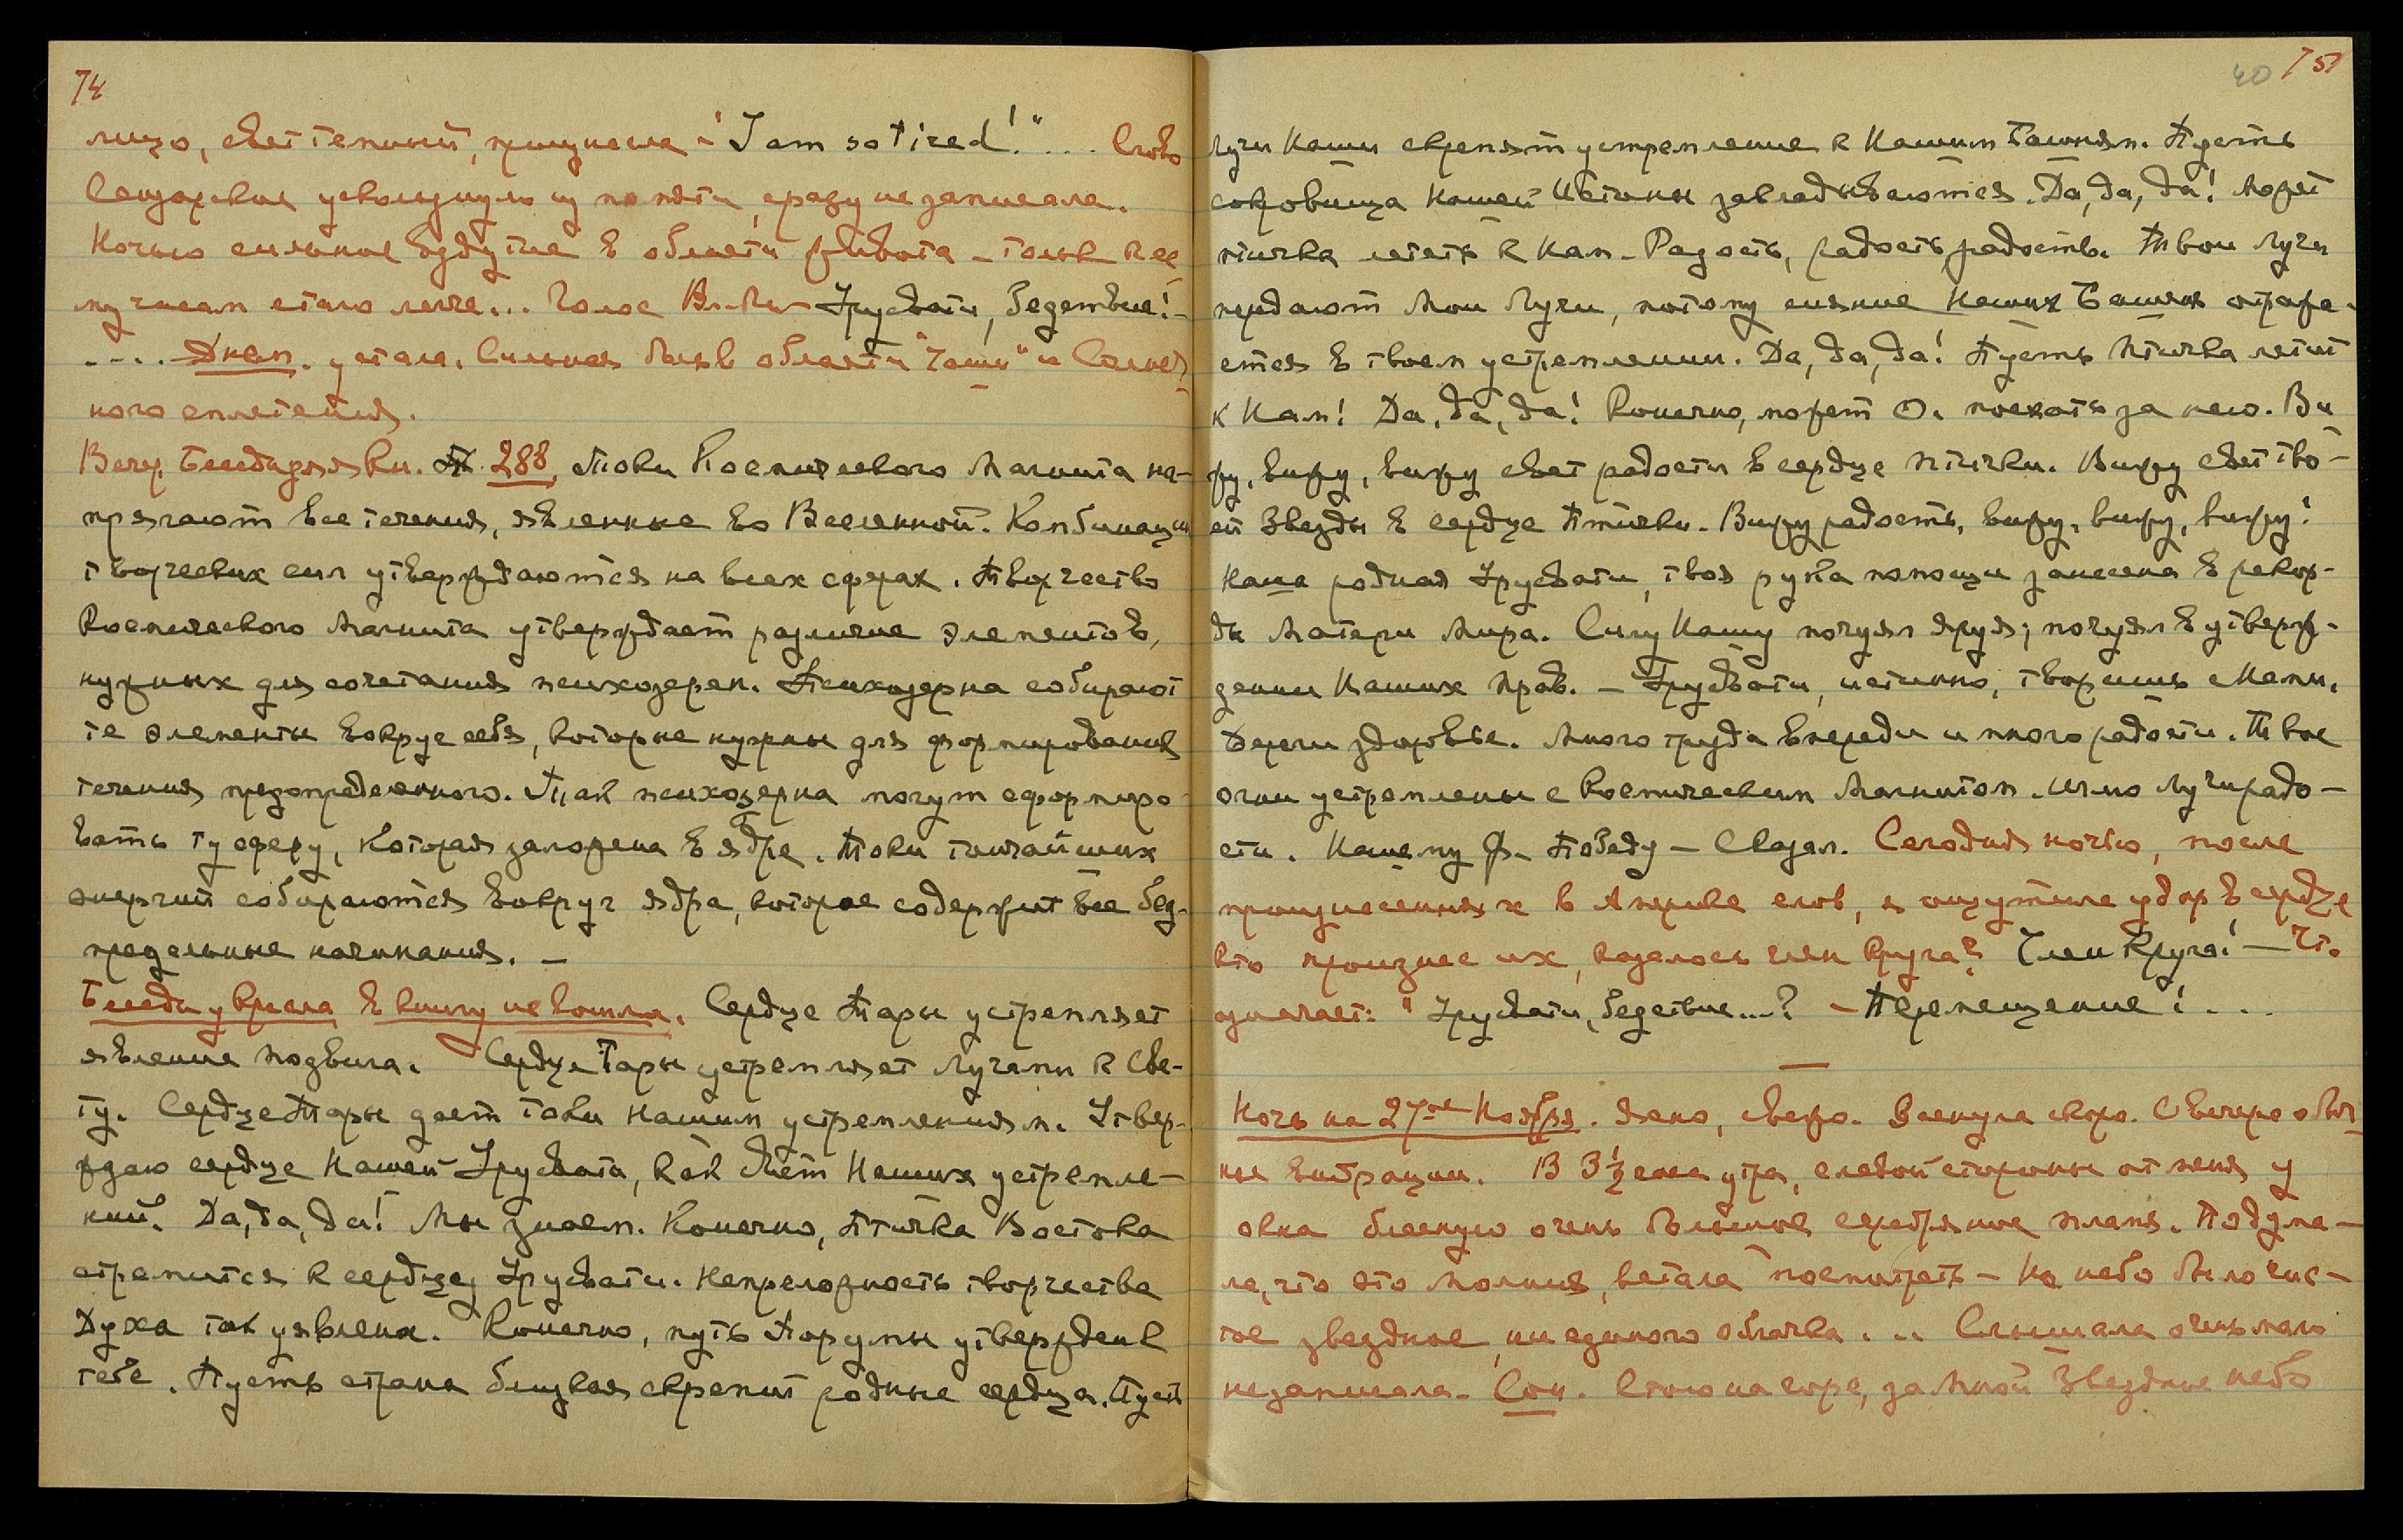 74
лицо, свет темный, прошумела – "I am so tired!" .... Слово
Сензарское ускользнуло из памяти, сразу не записала.
Ночью сильное вздутие в области живота – только к се-
ми часам стало легче... Голос Вл. Вл. – Урусвати, бедствие! –
.... Днем. устала. Сильная боль в области "Чаши" и Солнеч-
ного сплетения.
Веч. Беседа для Кн. 288. Токи Космического Магнита на-
прягают все течения, явленные во Вселенной. Комбинации
творческих сил утверждаются на всех сферах. Творчество
Космического Магнита утверждает различие элементов,
нужных для сочетания психозерен. Психозерна собирают
те элементы вокруг себя, которые нужны для формирования
течения предопределенного. Так психозерна могут сформиро-
вать ту сферу, которая заложена в ядре. Токи тончайших
энергий собираются вокруг ядра, которое содержит все бес-
предельные начинания. –
Беседа у кресла в книгу не вошла. Сердце Тары устремляет
явление подвига. Сердце Тары устремляет лучами к Све-
ту. Сердце Тары дает токи нашим устремлениям. Утвер-
ждаю сердце Нашей Урусвати, как свет Наших устремле-
ний. Да, да, да! Мы знаем. Конечно, птичка Востока
стремится к сердцу Урусвати. Непреложность творчества
Духа так уявлена. Конечно, путь Порумы утвержден к
тебе. Пусть страна близкая скрепит родные сердца. Пусть
40 75
Лучи Наши скрепят устремление к Нашим Башням. Пусть
сокровища Нашей Истины закладываются. Да, да, да! Может
птичка лететь к Нам. Радость, радость, радость. Твои Лучи
передают Мои Лучи, потому сияние Наших Башен отража-
ется в твоем устремлении. Да, да, да! Пусть птичка летит
к Нам! Да, да, да! Конечно, может О. поехать за нею. Ви-
жу, вижу, вижу свет радости в сердце птички. Вижу свет тво-
ей Звезды в сердце птички. Вижу радость, вижу, вижу, вижу!
Наша родная Урусвати, твоя рука помощи занесена в рекор-
ды Матери Мира. Силу Нашу почуял Яруя; почуял в утверж-
дении Наших Прав. – Урусвати, истинно, творишь с Нами.
Береги здоровье. Много труда впереди и много радости. Твои
огни устремлены с Космическим Магнитом. Шлю Луч радо-
сти. Нашему Ф. Победу – Сказал. Сегодня ночью, после
произнесенных в Америке слов, я ощутила удар в сердце
Кто произнес их, казалось член Круга? Член Круга! – Что
означает: "Урусвати, бедствие...? – Перемещение! ...
Ночь на 27ое Ноября. Ясно, свежо. Заснула скоро. С вечера обыч-
ные вибрации. В 3½ часа утра, с левой стороны от меня у
окна блеснуло очень большое серебряное пламя. Подума-
ла, что это молния, встала посмотреть – Но небо было чис-
тое звездное, ни единого облачка. .. Слышала очень мало
не записала. Сон. Стою на горе, за мной Звездное небо